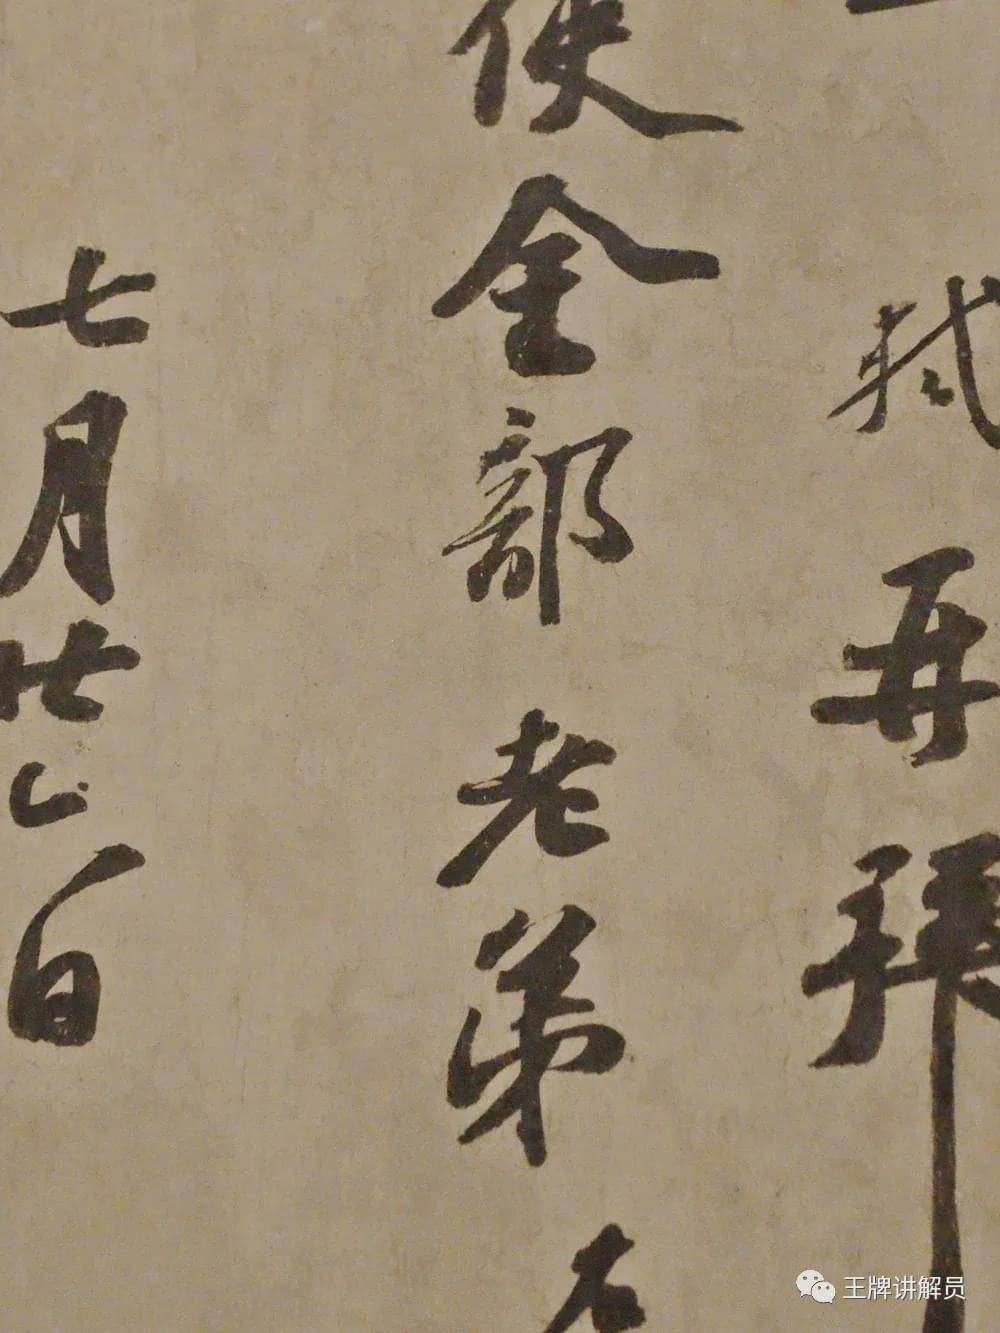 軾再拜
使金部老弟
七月廿六日
王牌讲解员